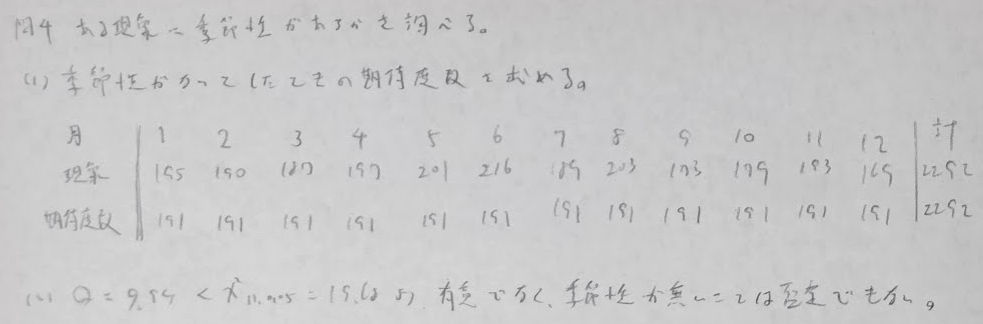 問4 ある現象に季節性があるかを調べる。
(1) 季節性がないとしたときの期待度数を求める。
月 1 2 3 4 5 6 7 8 9 10 11 12 計
現象 195 190 187 197 201 216 189 203 173 179 193 169 2292
期待度数 191 191 191 191 191 191 191 191 191 191 191 191 2292
(2) Q = 9.94 < χ²11,0.05 = 19.68 より 有意でなく、季節性が無いことは否定できない。